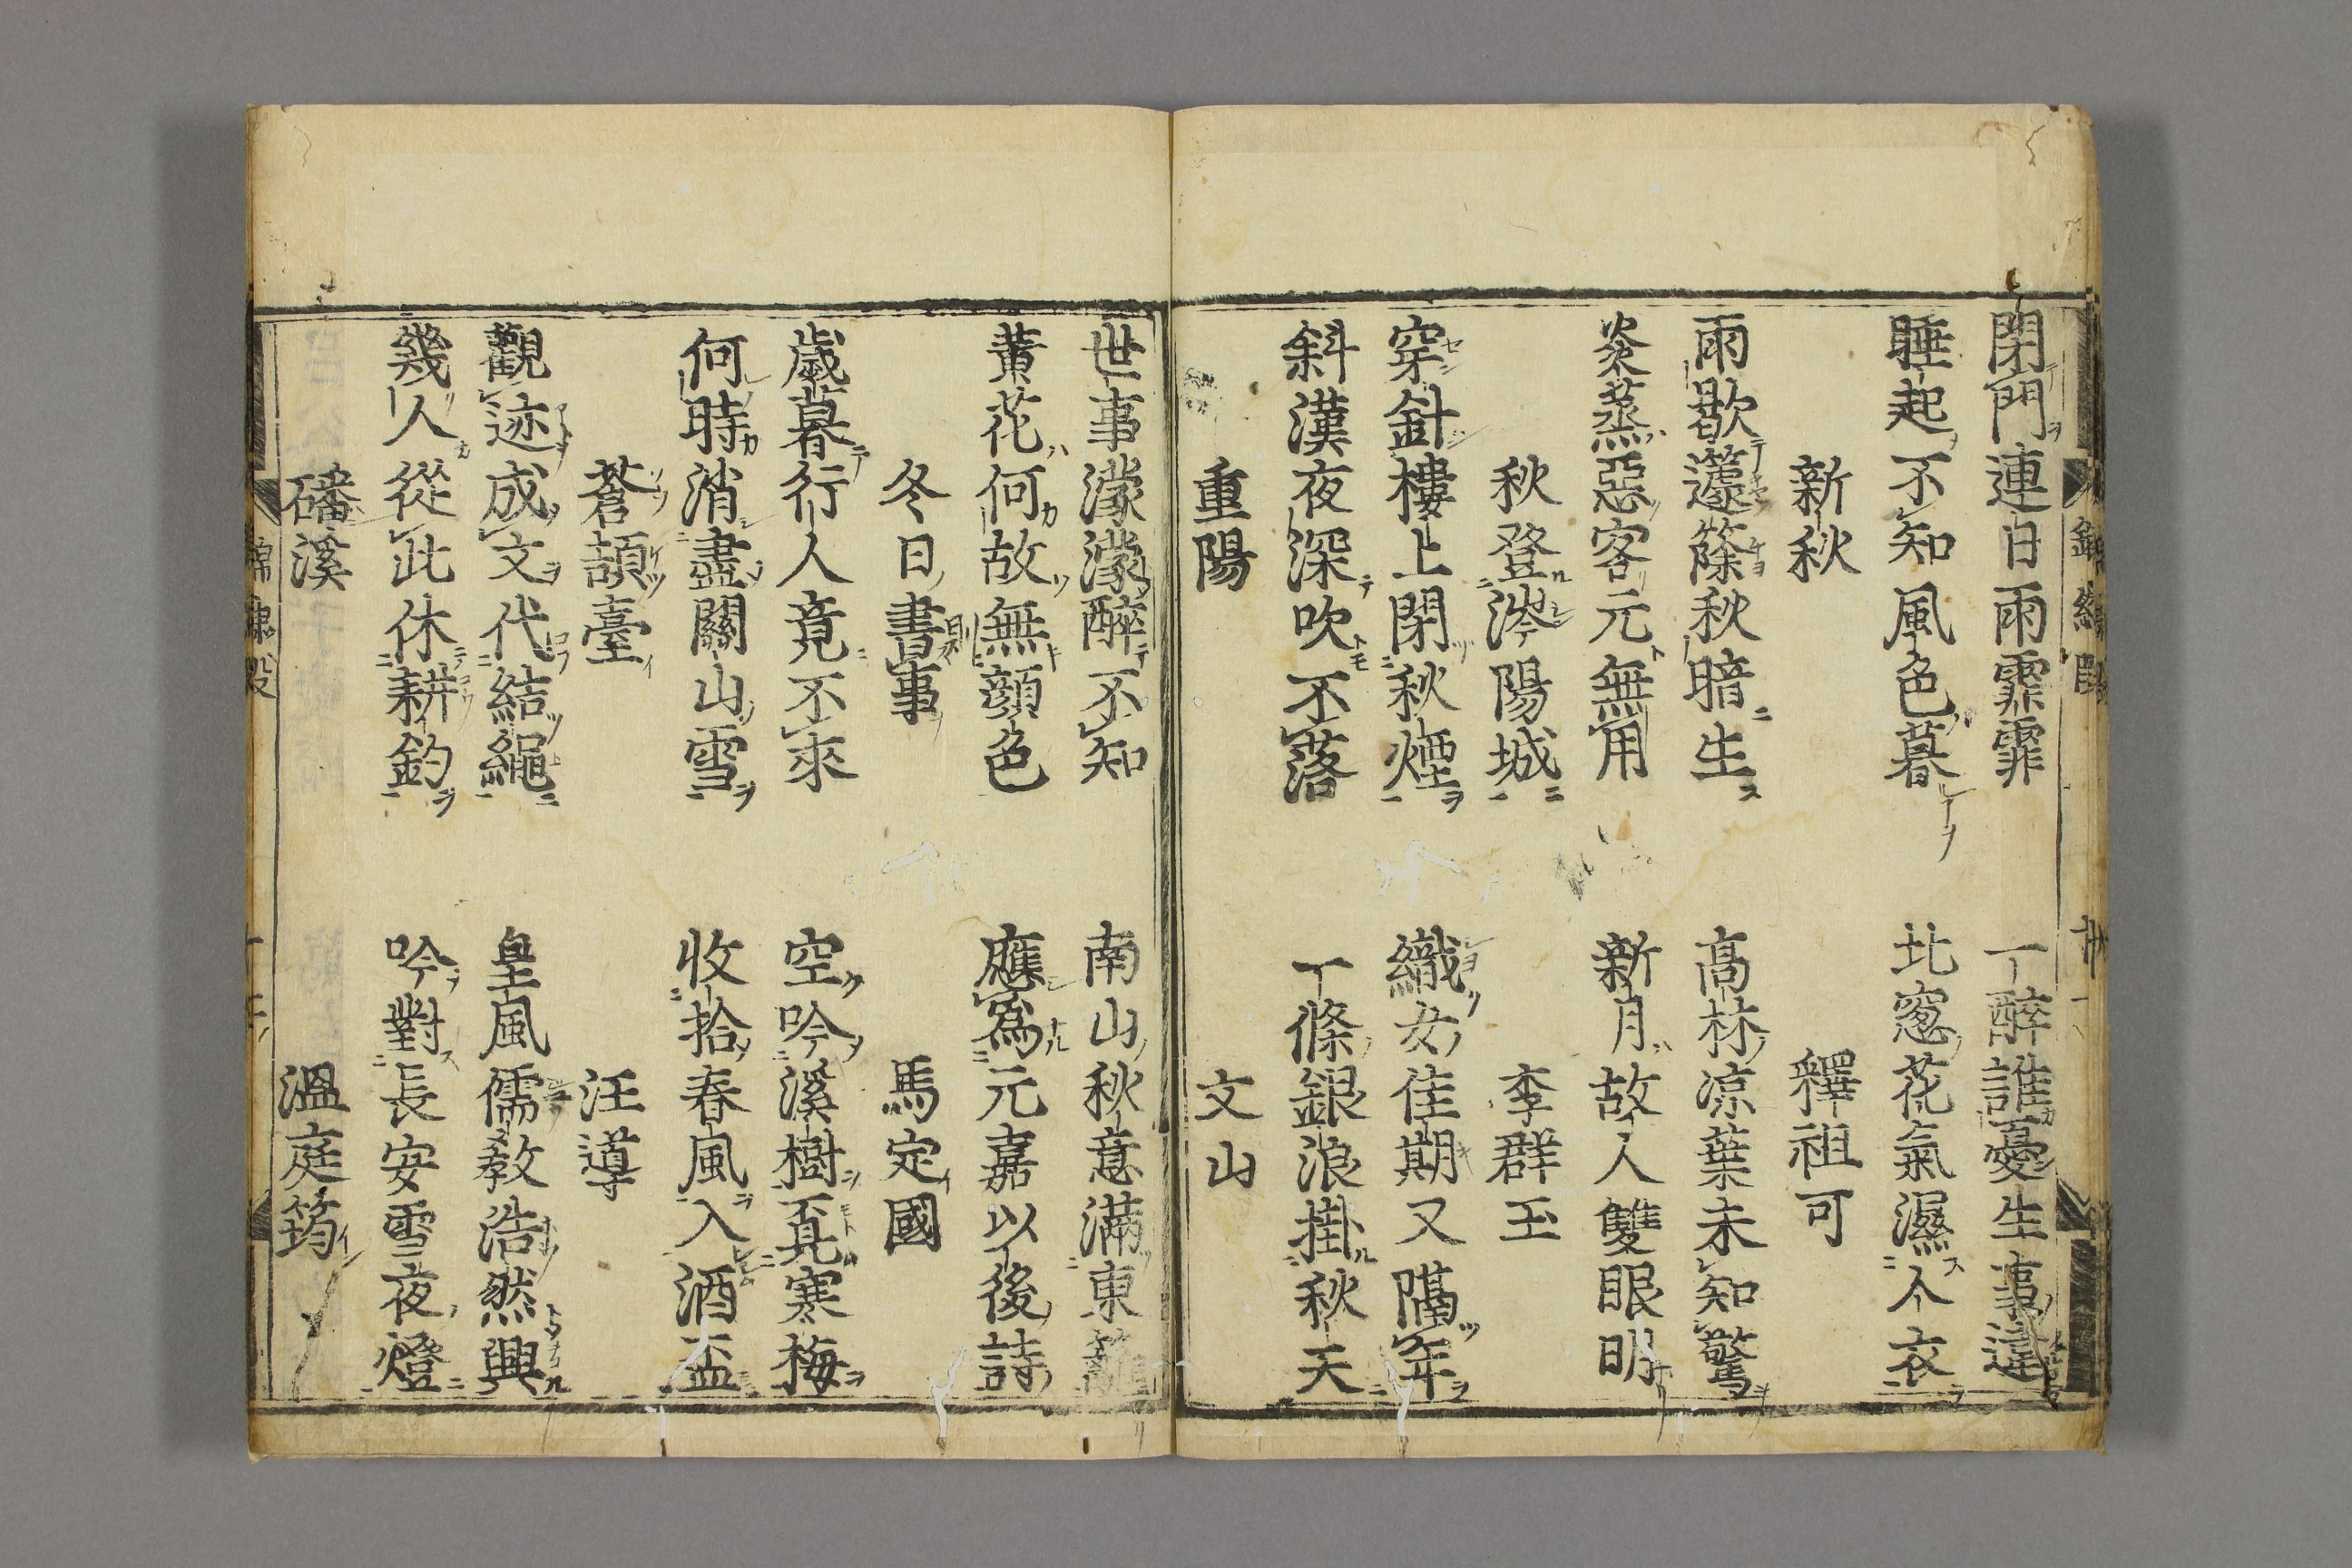 閉門連日雨霏霏　一醉誰憂生事違
睡起不知風色暮　北窓花氣濕人衣
新秋　釋祖可
雨歇籧篨秋暗生　高林凉葉未知驚
炎蒸惡客元無用　新月故人雙眼明
秋登涔陽城　李群玉
穿針樓上閉秋煙　織女佳期又隔年
斜漢夜深吹不落　一條銀浪掛秋天
重陽　文山
世事濛濛醉不知　南山秋意滿東籬
黃花何故無顔色　應爲元嘉以後詩
冬日書事　馬定國
歲暮行人竟不來　空吟溪樹覓寒梅
何時消盡關山雪　收拾春風入酒盃
蒼頡臺　汪導
觀迹成文代結繩　皇風儒敎浩然興
幾人從此休耕釣　吟對長安雪夜燈
磻溪　溫庭筠